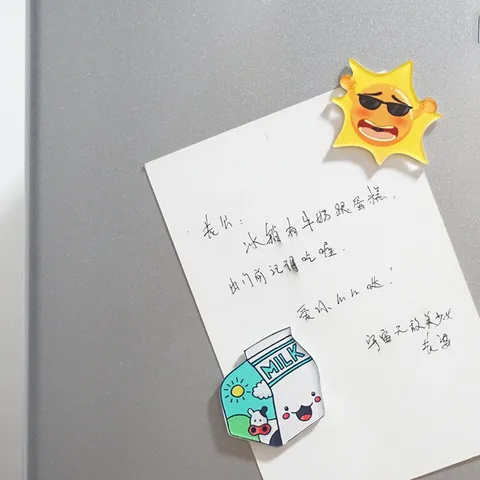 老公：
冰箱有牛奶跟蛋糕，
出门前记得吃喔．
爱你ㄇㄇ哒！
宇宙无敌美少女
老婆
MILK